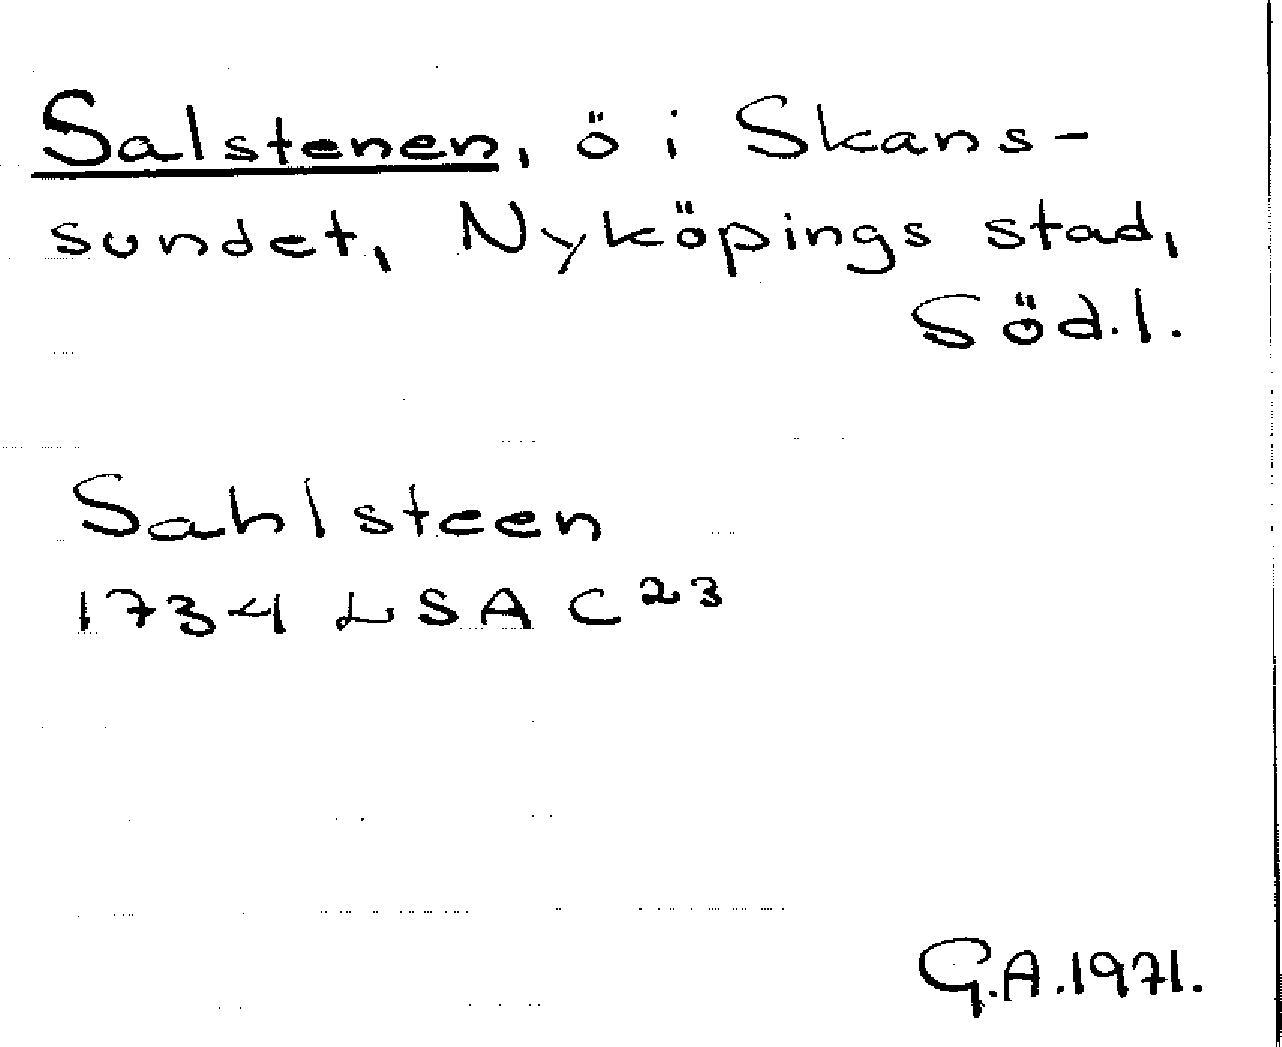 Salstenen, ö i Skans-
sundet, Nyköpings stad,
Söd.l.
Sahlsteen
1734 LSA C 23
G.A.1971.